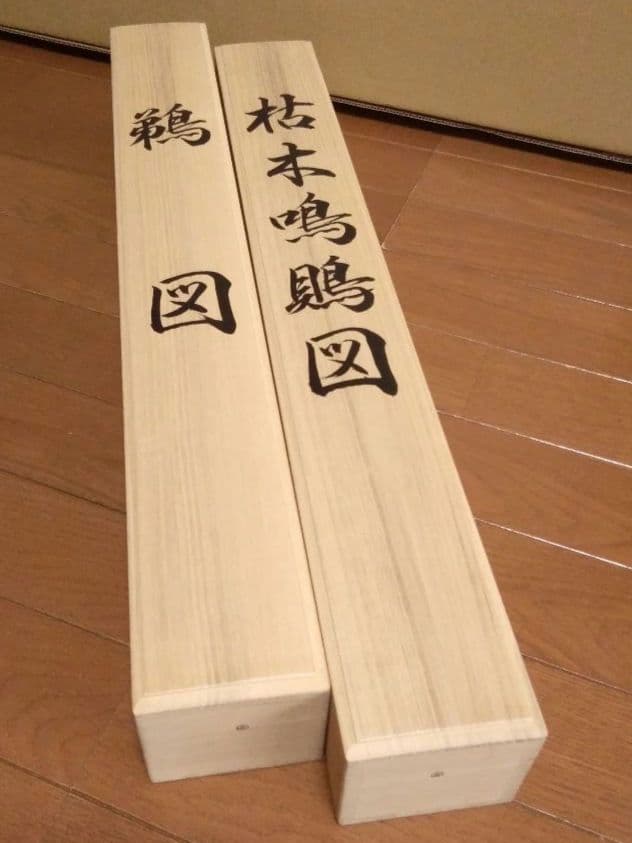 枯木鳴鵙図
鵜図